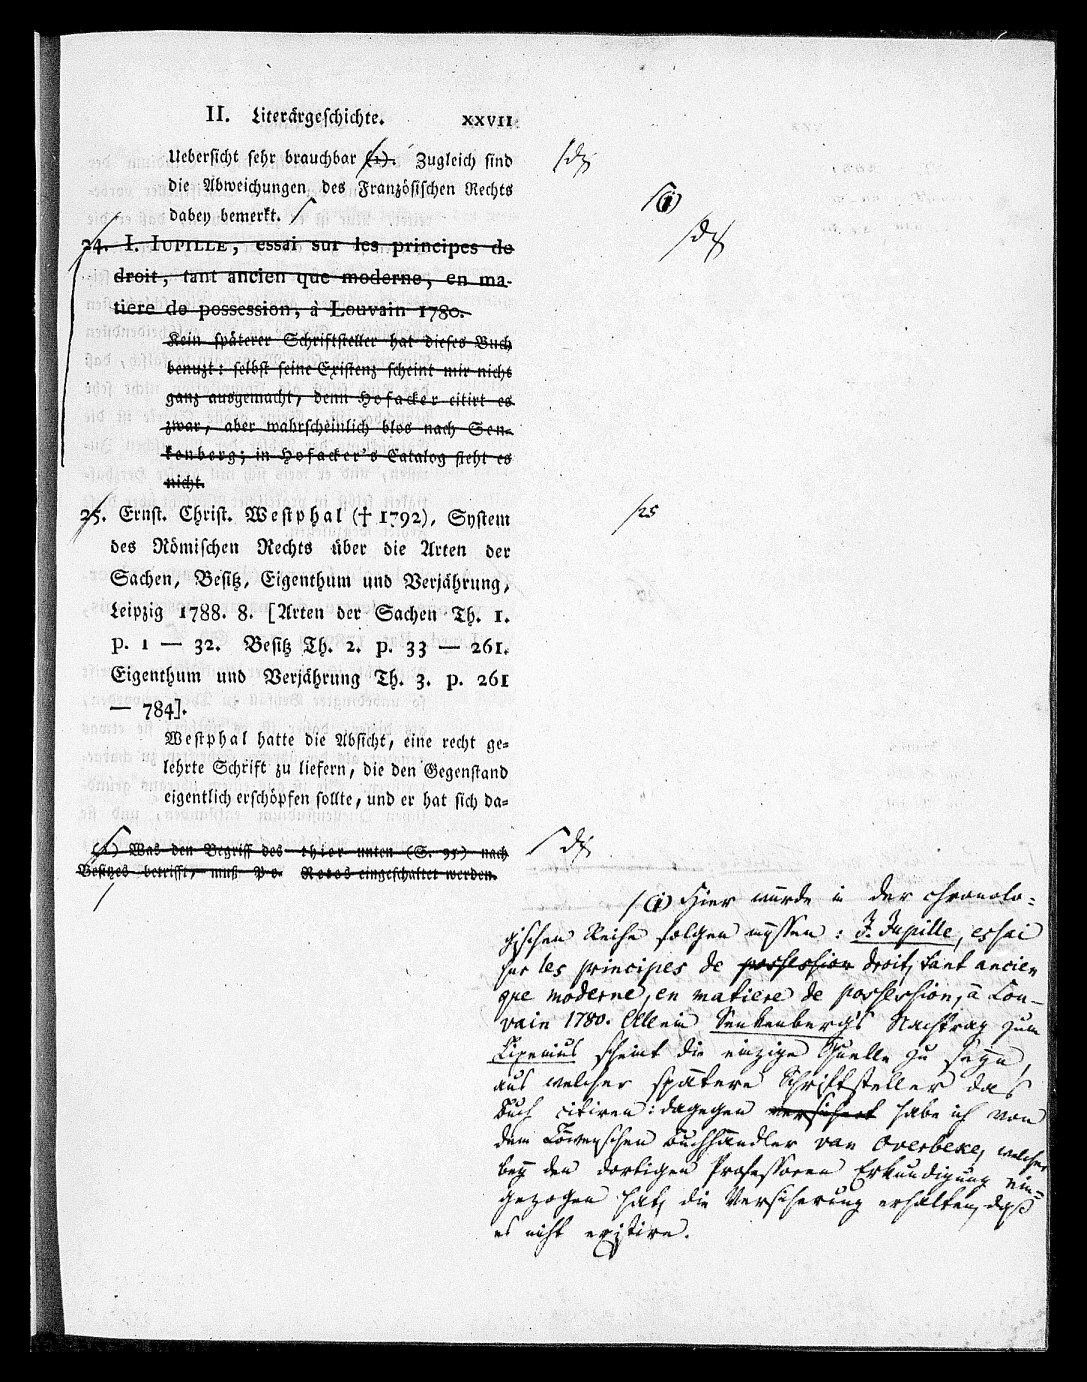 II. Literärgeschichte. XXVII
Uebersicht sehr brauchbar (1). Zugleich sind
die Abweichungen des Französischen Rechts
dabey bemerkt.
24. I. IUPILLE, essai sur les principes de
droit, tant ancien que moderne, en ma-
tiere de possession, à Louvain 1780.
Kein späterer Schriftsteller hat dieses Buch
benuzt: selbst seine Existenz scheint mir nicht
ganz ausgemacht, denn Hofacker citirt es
zwar, aber wahrscheinlich blos nach Sen-
kenberg; in Hofacker's Catalog steht es
nicht.
25. Ernst. Christ. Westphal († 1792), System
des Römischen Rechts über die Arten der
Sachen, Besitz, Eigenthum und Verjährung,
Leipzig 1788. 8. [Arten der Sachen Th. 1.
p. 1 — 32. Besitz Th. 2. p. 33 — 261.
Eigenthum und Verjährung Th. 3. p. 261
— 784].
Westphal hatte die Absicht, eine recht ge-
lehrte Schrift zu liefern, die den Gegenstand
eigentlich erschöpfen sollte, und er hat sich da-
(1) Was den Begriff des unten (S. 95) nach
Besitzes betrifft, muß eingeschaltet werden.
(1)
25
(1) Hier würde in der chronolo-
gischen Reihe folgen müssen: J. Jupille, essai
sur les principes de possession droit, tant ancien
que moderne, en matiere de possession, à Lou-
vain 1780. Allein Senkenberg's Nachtrag zum
Lipenius scheint die einzige Quelle zu seyn,
aus welcher spätere Schriftsteller das
Buch citiren: dagegen versichert habe ich von
dem Löwenschen Buchhändler van Overbeke, welcher
bey den dortigen Professoren Erkundigung ein-
gezogen hat, die Versicherung erhalten, daß
es nicht existire.